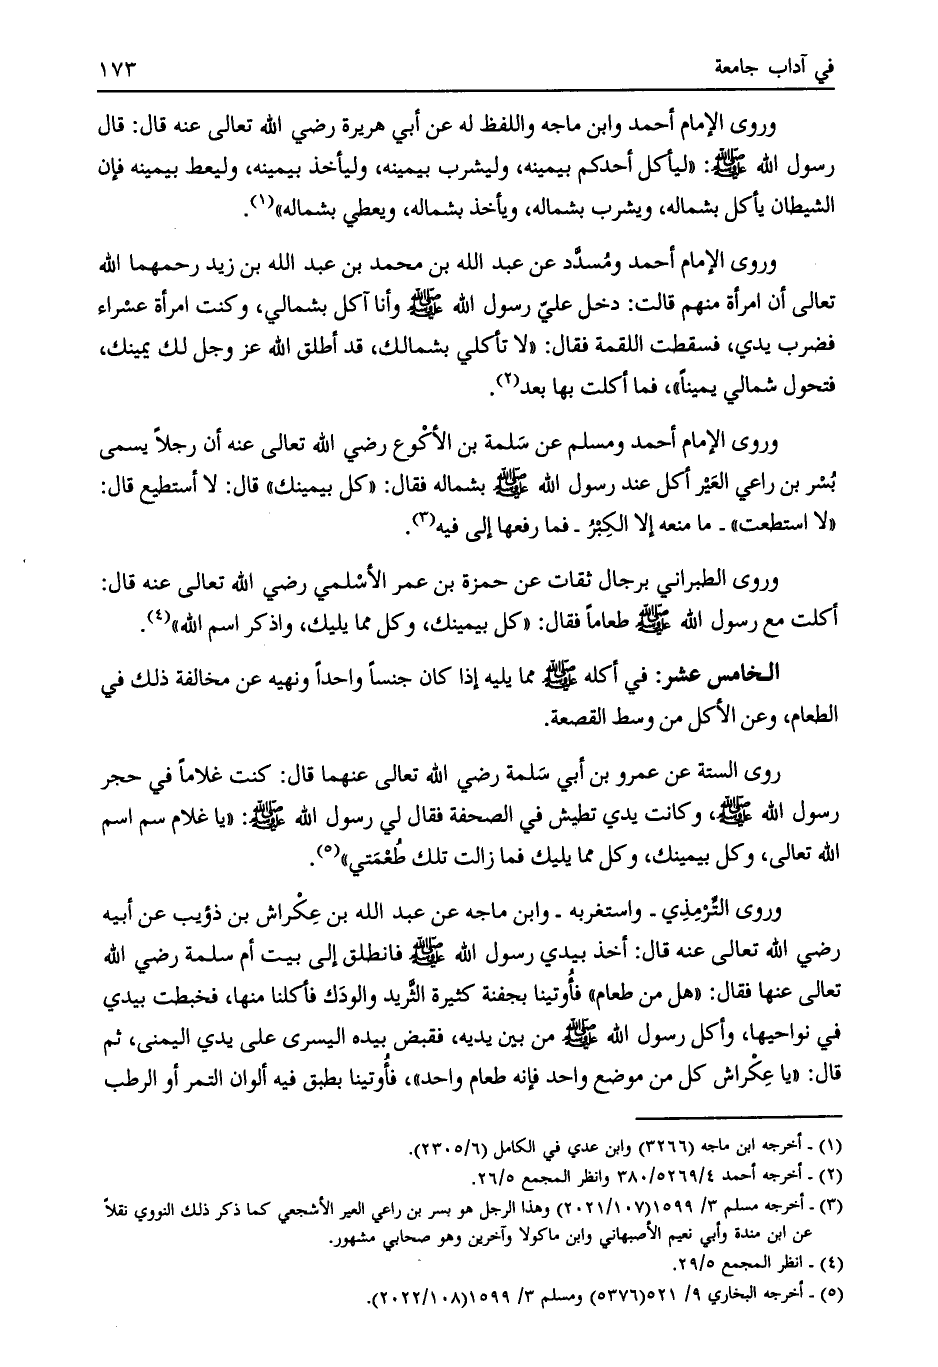 في آداب جامعة ١٧٣
وروى الإمام أحمد وابن ماجه واللفظ له عن أبي هريرة رضي الله تعالى عنه قال: قال
رسول الله ﷺ: «ليأكل أحدكم بيمينه، وليشرب بيمينه، وليأخذ بيمينه، وليعط بيمينه فإن
الشيطان يأكل بشماله، ويشرب بشماله، ويأخذ بشماله، ويعطي بشماله»(١).
وروى الإمام أحمد ومُسدَّد عن عبد الله بن محمد بن عبد الله بن زيد رحمهما الله
تعالى أن امرأة منهم قالت: دخل عليّ رسول الله ﷺ وأنا آكل بشمالي، وكنت امرأة عشراء
فضرب يدي، فسقطت اللقمة فقال: «لا تأكلي بشمالك، قد أطلق الله عز وجل لك يمينك،
فتحول شمالي يميناً»، فما أكلت بها بعد(٢).
وروى الإمام أحمد ومسلم عن سَلمة بن الأكْوع رضي الله تعالى عنه أن رجلاً يسمى
بُسْر بن راعي العَيْر أكل عند رسول الله ﷺ بشماله فقال: «كل بيمينك» قال: لا أستطيع قال:
«لا استطعت» ـ ما منعه إلا الكِبْرُ ـ فما رفعها إلى فيه(٣).
وروى الطبراني برجال ثقات عن حمزة بن عمر الأسْلمي رضي الله تعالى عنه قال:
أكلت مع رسول الله ﷺ طعاماً فقال: «كل بيمينك، وكل مما يليك، واذكر اسم الله»(٤).
الخامس عشر: في أكله ﷺ مما يليه إذا كان جنساً واحداً ونهيه عن مخالفة ذلك في
الطعام، وعن الأكل من وسط القصعة.
روى الستة عن عمرو بن أبي سَلمة رضي الله تعالى عنهما قال: كنت غلاماً في حجر
رسول الله ﷺ، وكانت يدي تطيش في الصحفة فقال لي رسول الله ﷺ: «يا غلام سم اسم
الله تعالى، وكل بيمينك، وكل مما يليك فما زالت تلك طُعْمَتي»(٥).
وروى التِّرْمِذي ـ واستغربه ـ وابن ماجه عن عبد الله بن عِكْراش بن ذؤيب عن أبيه
رضي الله تعالى عنه قال: أخذ بيدي رسول الله ﷺ فانطلق إلى بيت أم سلمة رضي الله
تعالى عنها فقال: «هل من طعام» فأُوتينا بجفنة كثيرة الثَّريد والودَك فأكلنا منها، فخبطت بيدي
في نواحيها، وأكل رسول الله ﷺ من بين يديه، فقبض بيده اليسرى على يدي اليمنى، ثم
قال: «يا عِكْراش كل من موضع واحد فإنه طعام واحد»، فأُوتينا بطبق فيه ألوان التمر أو الرطب
(١) ـ أخرجه ابن ماجه (٣٢٦٦) وابن عدي في الكامل (٢٣٠٥/٦).
(٢) ـ أخرجه أحمد ٥٢٦٩/٤/ ٣٨٠ وانظر المجمع ٢٦/٥.
(٣) ـ أخرجه مسلم ٣/ ١٥٩٩(٢٠٢١/١٠٧) وهذا الرجل هو بسر بن راعي العير الأشجعي كما ذكر ذلك النووي نقلاً
عن ابن مندة وأبي نعيم الأصبهاني وابن ماكولا وآخرين وهو صحابي مشهور.
(٤) ـ انظر المجمع ٢٩/٥.
(٥) ـ أخرجه البخاري ٩/ ٥٢١(٥٣٧٦) ومسلم ٣/ ١٥٩٩(٢٠٢٢/١٠٨).